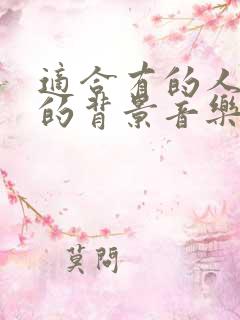 適合有的人
的背景音樂
莫問